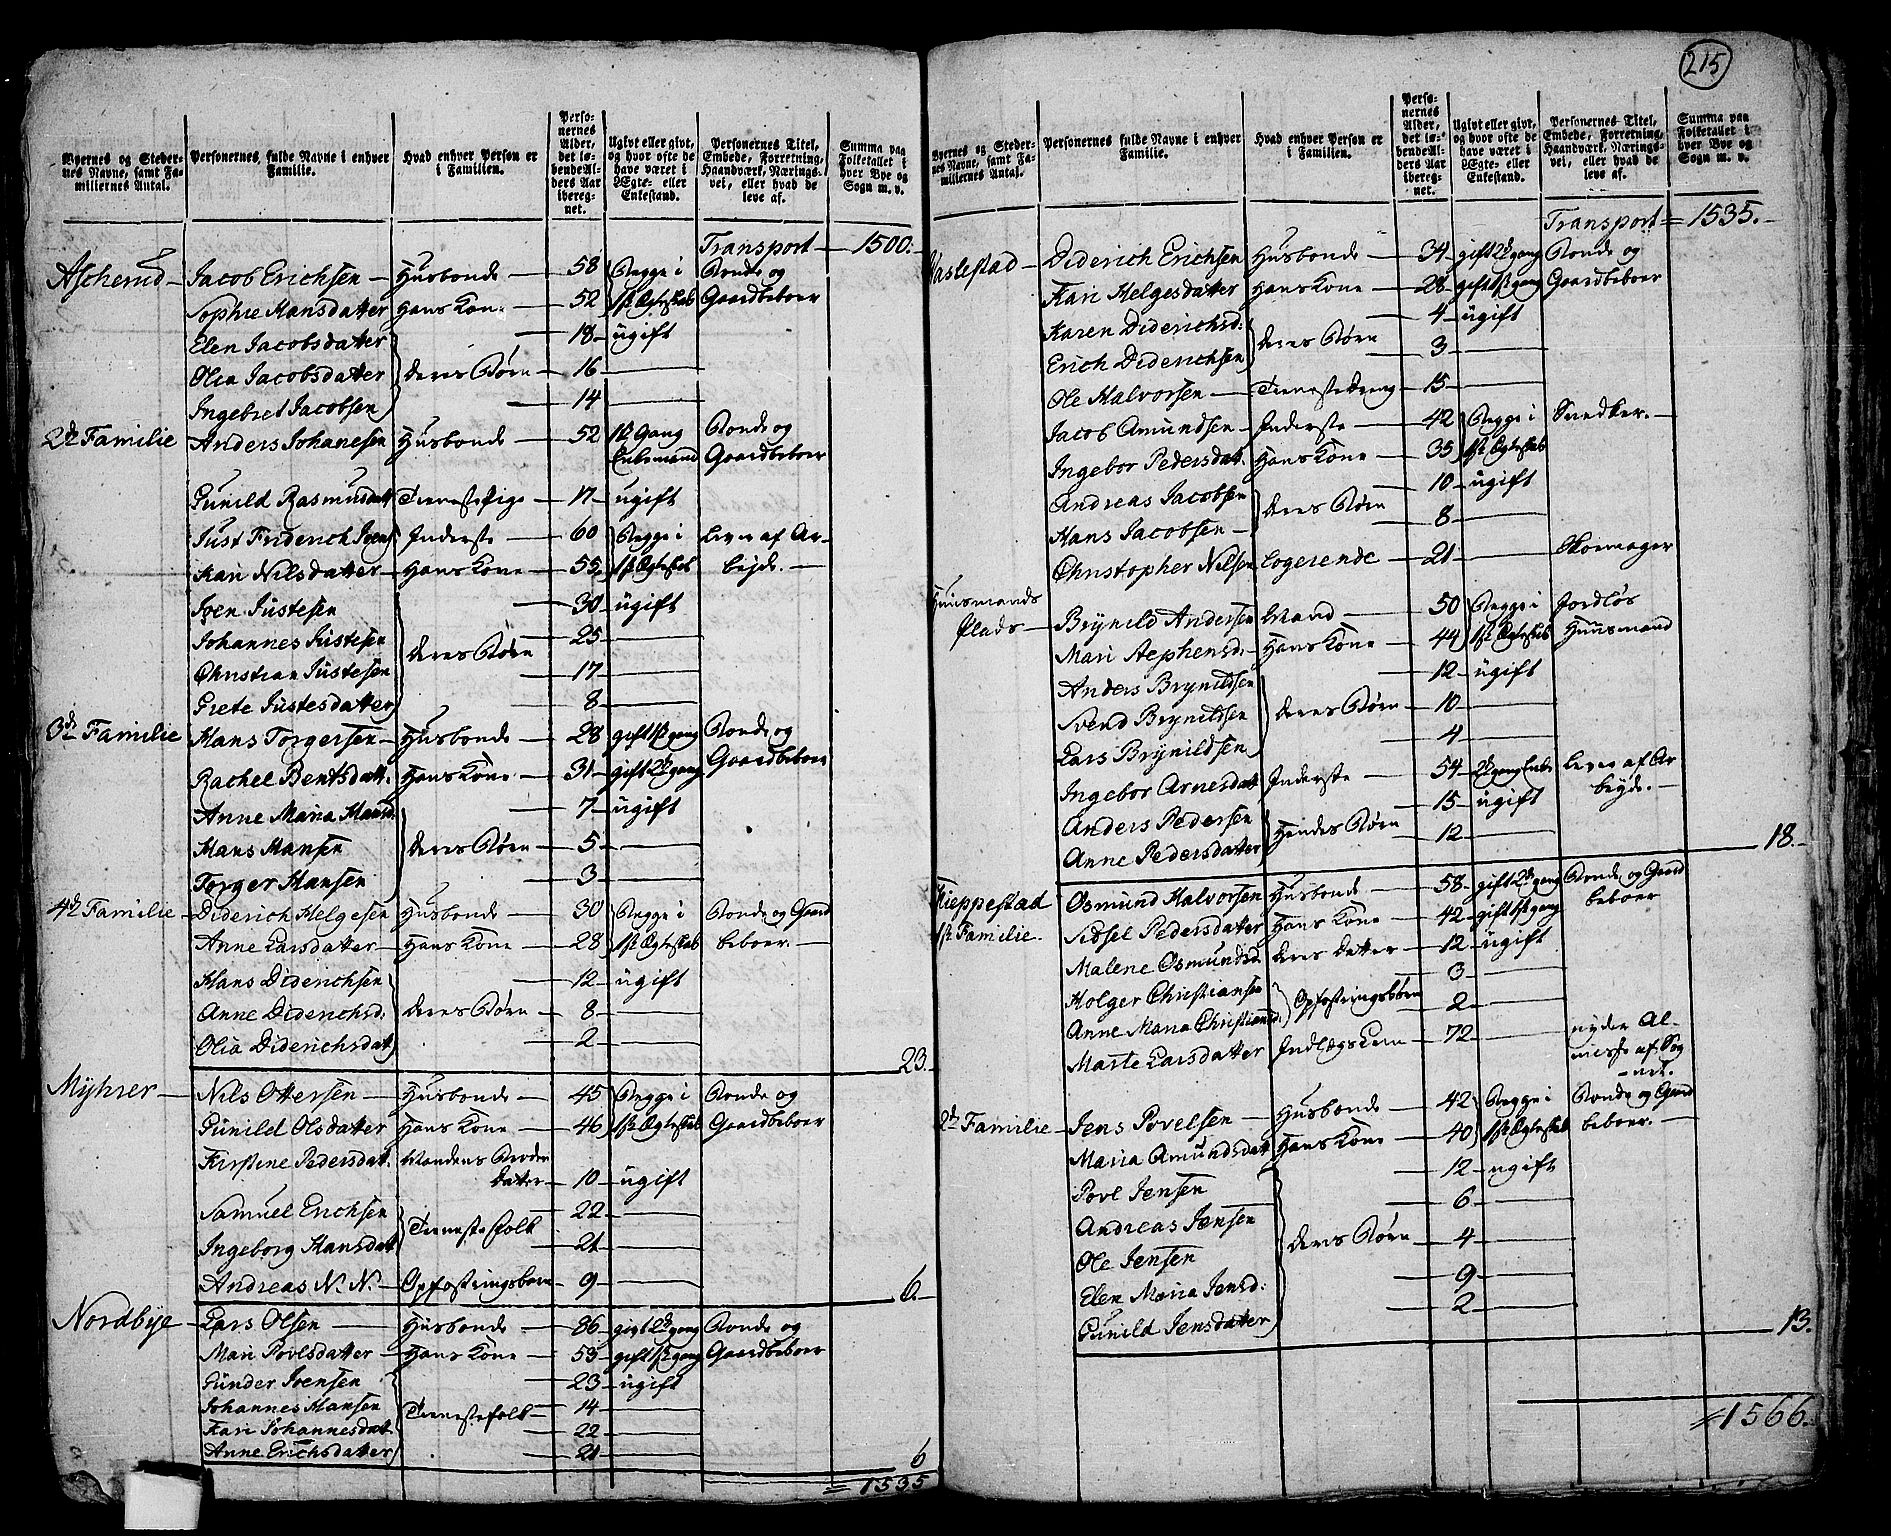 215
Byernes og Steder-
nes Navne, samt Fa-
miliernes Antal.
Personernes fulde Navne i enhver
Familie.
Hvad enhver Person er
i Familien.
Perso-
nernes
Alder,
det lø-
bende Al-
ders Aar
iberegnet.
Ugivt eller givt,
og hvor ofte de
have været i
Ægte- eller
Enkestand.
Personernes Titel,
Embede, Forretning,
Haandværk, Nærings-
vei, eller hvad de
leve af.
Summa paa
Folketallet i
hver Bye og
Sogn m. v.
Transport — 1500.
Ascherud — Jacob Erichsen — Husbonde — 58 Begge i Bonde og
Sophie Hansdatter Hans Kone — 52 1st Ægteskab Gaardbeboer
Elen Jacobsdatter — 18 — ugift
Olia Jacobsdatter deres Børn — 16 —
Ingebret Jacobsen — 14 —
2de Familie Anders Johanesen Husbonde — 52 1st Gang Bonde og
Enkemand Gaardbeboer
Gunild Rasmusdatt Tienestepige — 17 — ugift
Just Friderich Joens Inderste — 60 Begge i Lever af Ar-
Kari Nilsdatter — Hans Kone — 55 1st Ægteskab bejde. —
Joen Justesen — 30 ugift
Johannes Justesen — 25 —
deres Børn
Christian Justesen — 17 —
Grete Justesdatter — 8 —
3de Familie Hans Torgersen — Husbonde — 28 gift 1st gang Bonde og
Rachel Bentsdatt. Hans Kone — 31 gift 2de gang Gaardbeboer
Anne Maria Hansd. — 7 — ugift
Hans Hansen deres Børn — 5 —
Torger Hansen — 3 —
4de Familie — Diderich Helgesen Husbonde — 30 Begge i Bonde og Gaard
Anne Larsdatter — Hans Kone — 28 1st Ægteskab beboer. —
Hans Diderichsen — 12 — ugift
Anne Diderichsd. deres Børn — 8 —
Olia Diderichsdatt — 2 —
23.
Myhrer — Nils Ottersen — Husbonde — 45 Begge i Bonde og
Gunild Olsdatter — Hans Kone — 46 1st Ægteskab Gaardbeboer
Kirstine Pedersdatt. Mandens Broder
datter — 10 — ugift
Samuel Erichsen — 22 —
Tienestefolk
Ingeborg Hansdatt — 21 —
Andreas N. N. — Opfostringsbarn — 9 —
6.
Nordbye — Lars Olsen — Husbonde — 86 gift 2de gang Bonde og
Mari Povlsdatter — Hans Kone — 53 gift 1st gang Gaardbeboer
Gunder Joensen — 23 — ugift
Johannes Hansen — 14 —
Tienestefolk
Kari Johannesdat — 22 —
Anne Erichsdatter — 21 —
6
= 1535
Byernes og Steder-
nes Navne, samt Fa-
miliernes Antal.
Personernes fulde Navne i enhver
Familie.
Hvad enhver Person er
i Familien.
Perso-
nernes
Alder,
det lø-
bende Al-
ders Aar
iberegnet.
Ugivt eller givt,
og hvor ofte de
have været i
Ægte- eller
Enkestand.
Personernes Titel,
Embede, Forretning,
Haandværk, Nærings-
vei, eller hvad de
leve af.
Summa paa
Folketallet i
hver Bye og
Sogn m. v.
Transport = 1535.
Haslestad — Diderich Erichsen Husbonde — 34 gift 2de gang Bonde og
Kari Helgesdatter Hans Kone — 28 gift 1st gang Gaardbeboer
Karen Diderichsd: — 4 — ugift
deres Børn
Erich Diderichsen — 3 —
Ole Halvorsen — Tienestedreng — 15 —
Jacob Amundsen — Inderste — 42 Begge i Snedker. —
Ingebor Pedersdat. Hans Kone — 35 1st Ægteskab
Andreas Jacobsen — 10 — ugift
deres Børn
Hans Jacobsen — 8 —
Christopher Nilsen Logerende — 21 — Skomager
Huusmands
Plads — Brynild Andersen Mand — 50 Begge i Jordløs
Mari Stephensd. — Hans Kone — 44 1st Ægteskab Huusmand
Anders Brynildsen — 12 — ugift
Svend Brynildsen deres Børn — 10 —
Lars Brynildsen — 4 —
Ingebor Arnesdatt Inderste — 54 2de gang Enke lever af Ar
bejde. —
Anders Pedersen — 15 — ugift
Hendes Børn
Anne Pedersdatter — 12 —
18.
Kieppestad Osmund Halvorsen Husbonde — 58 gift 2de gang Bonde og Gaard
1st Familie. Sidsel Pedersdatter Hans Kone — 42 gift 1st gang beboer
Malene Osmundsd. deres datter — 12 — ugift
Holger Christiansen — 3 —
Opfostringsbørn
Anne Maria Christiansd. — 2 —
Marte Larsdatter Indlægs Lem — 72 — nyder Al-
misse af Sog
net.
2de Familie — Jens Povelsen — Husbonde — 42 Begge i Bonde og Gaard
Maria Amundsdatt Hans Kone — 40 1st Ægteskab beboer. —
Povl Jensen — 12 — ugift
Andreas Jensen — 6 —
Ole Jensen deres Børn — 4 —
Elen Maria Jensd: — 9 —
Gunild Jensdatter — 2 —
13.
= 1566.